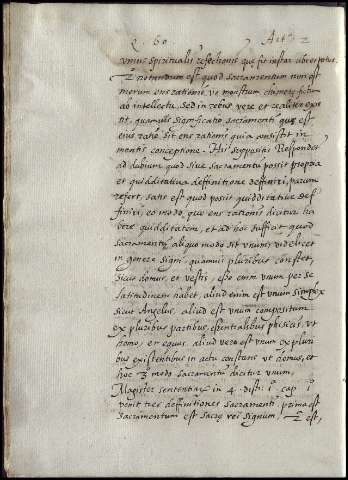 Q. 60 Art. 2
unius spiritualis refectionis que fit instar
notandum est quod sacramentum non est
merum ens rationis vt monstrum chimere fictum
ab intellectu sed in rebus vere et realiter exis
tit, quamuis significatio sacramenti que est
eius ratio sit ens rationis quia consistit in
mentis conceptione. His suppositis Respondet
ad dubium quod siue sacramentũ possit propria
et quidditatiua deffinitione deffiniri, parum
refert, satis est quod possit quidditatiue def
finiri, eo modo, quo ens rationis dicitur ha
bere quidditatem, et ad hoc sufficit quod
sacramentũ aliquo modo sit vnum, videlicet
in genere signi, quamuis pluribus constet,
sicut domus, et vestis, esse enim vnum per se
latitudinem habet, aliud enim est vnum simplex
sicut Angelus, aliud est vnum compositum
ex pluribus partibus essentialibus phisicis vt
homo, et equus, aliud vero est vnum ex pluri
bus existentibus in actu vt domus, et
hoc 3 modo sacramentũ dicitur vnum,
Magister sententiar in 4. dist. 1 cap 1
ponit tres deffinitiones sacramenti prima est
Sacramentum est sacrę rei signum, est,